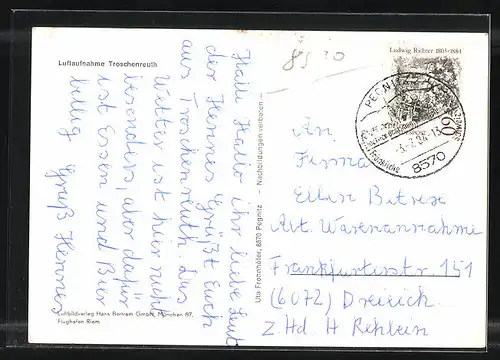 Luftaufnahme Troschenreuth
Hallo ihr liebe Leut
der Hennes Grüßt Euch
aus Troschenreuth. Das
Wetter ist hier nicht
besonders, aber dafür
ist Essen und Bier
billig Gruß Hennes
Luftbildverlag Hans Bertram GmbH, München 87,
Flughafen Riem
Uta Fronhöfer, 8570 Pegnitz — Nachbildungen verboten —
Ludwig Richter 1803-1884
60
PEGNITZ
8570
An
Firma
Abt. Warenannahme
Frankfurterstr. 151
(6072) Dreieich
Z. Hd H Rehlein